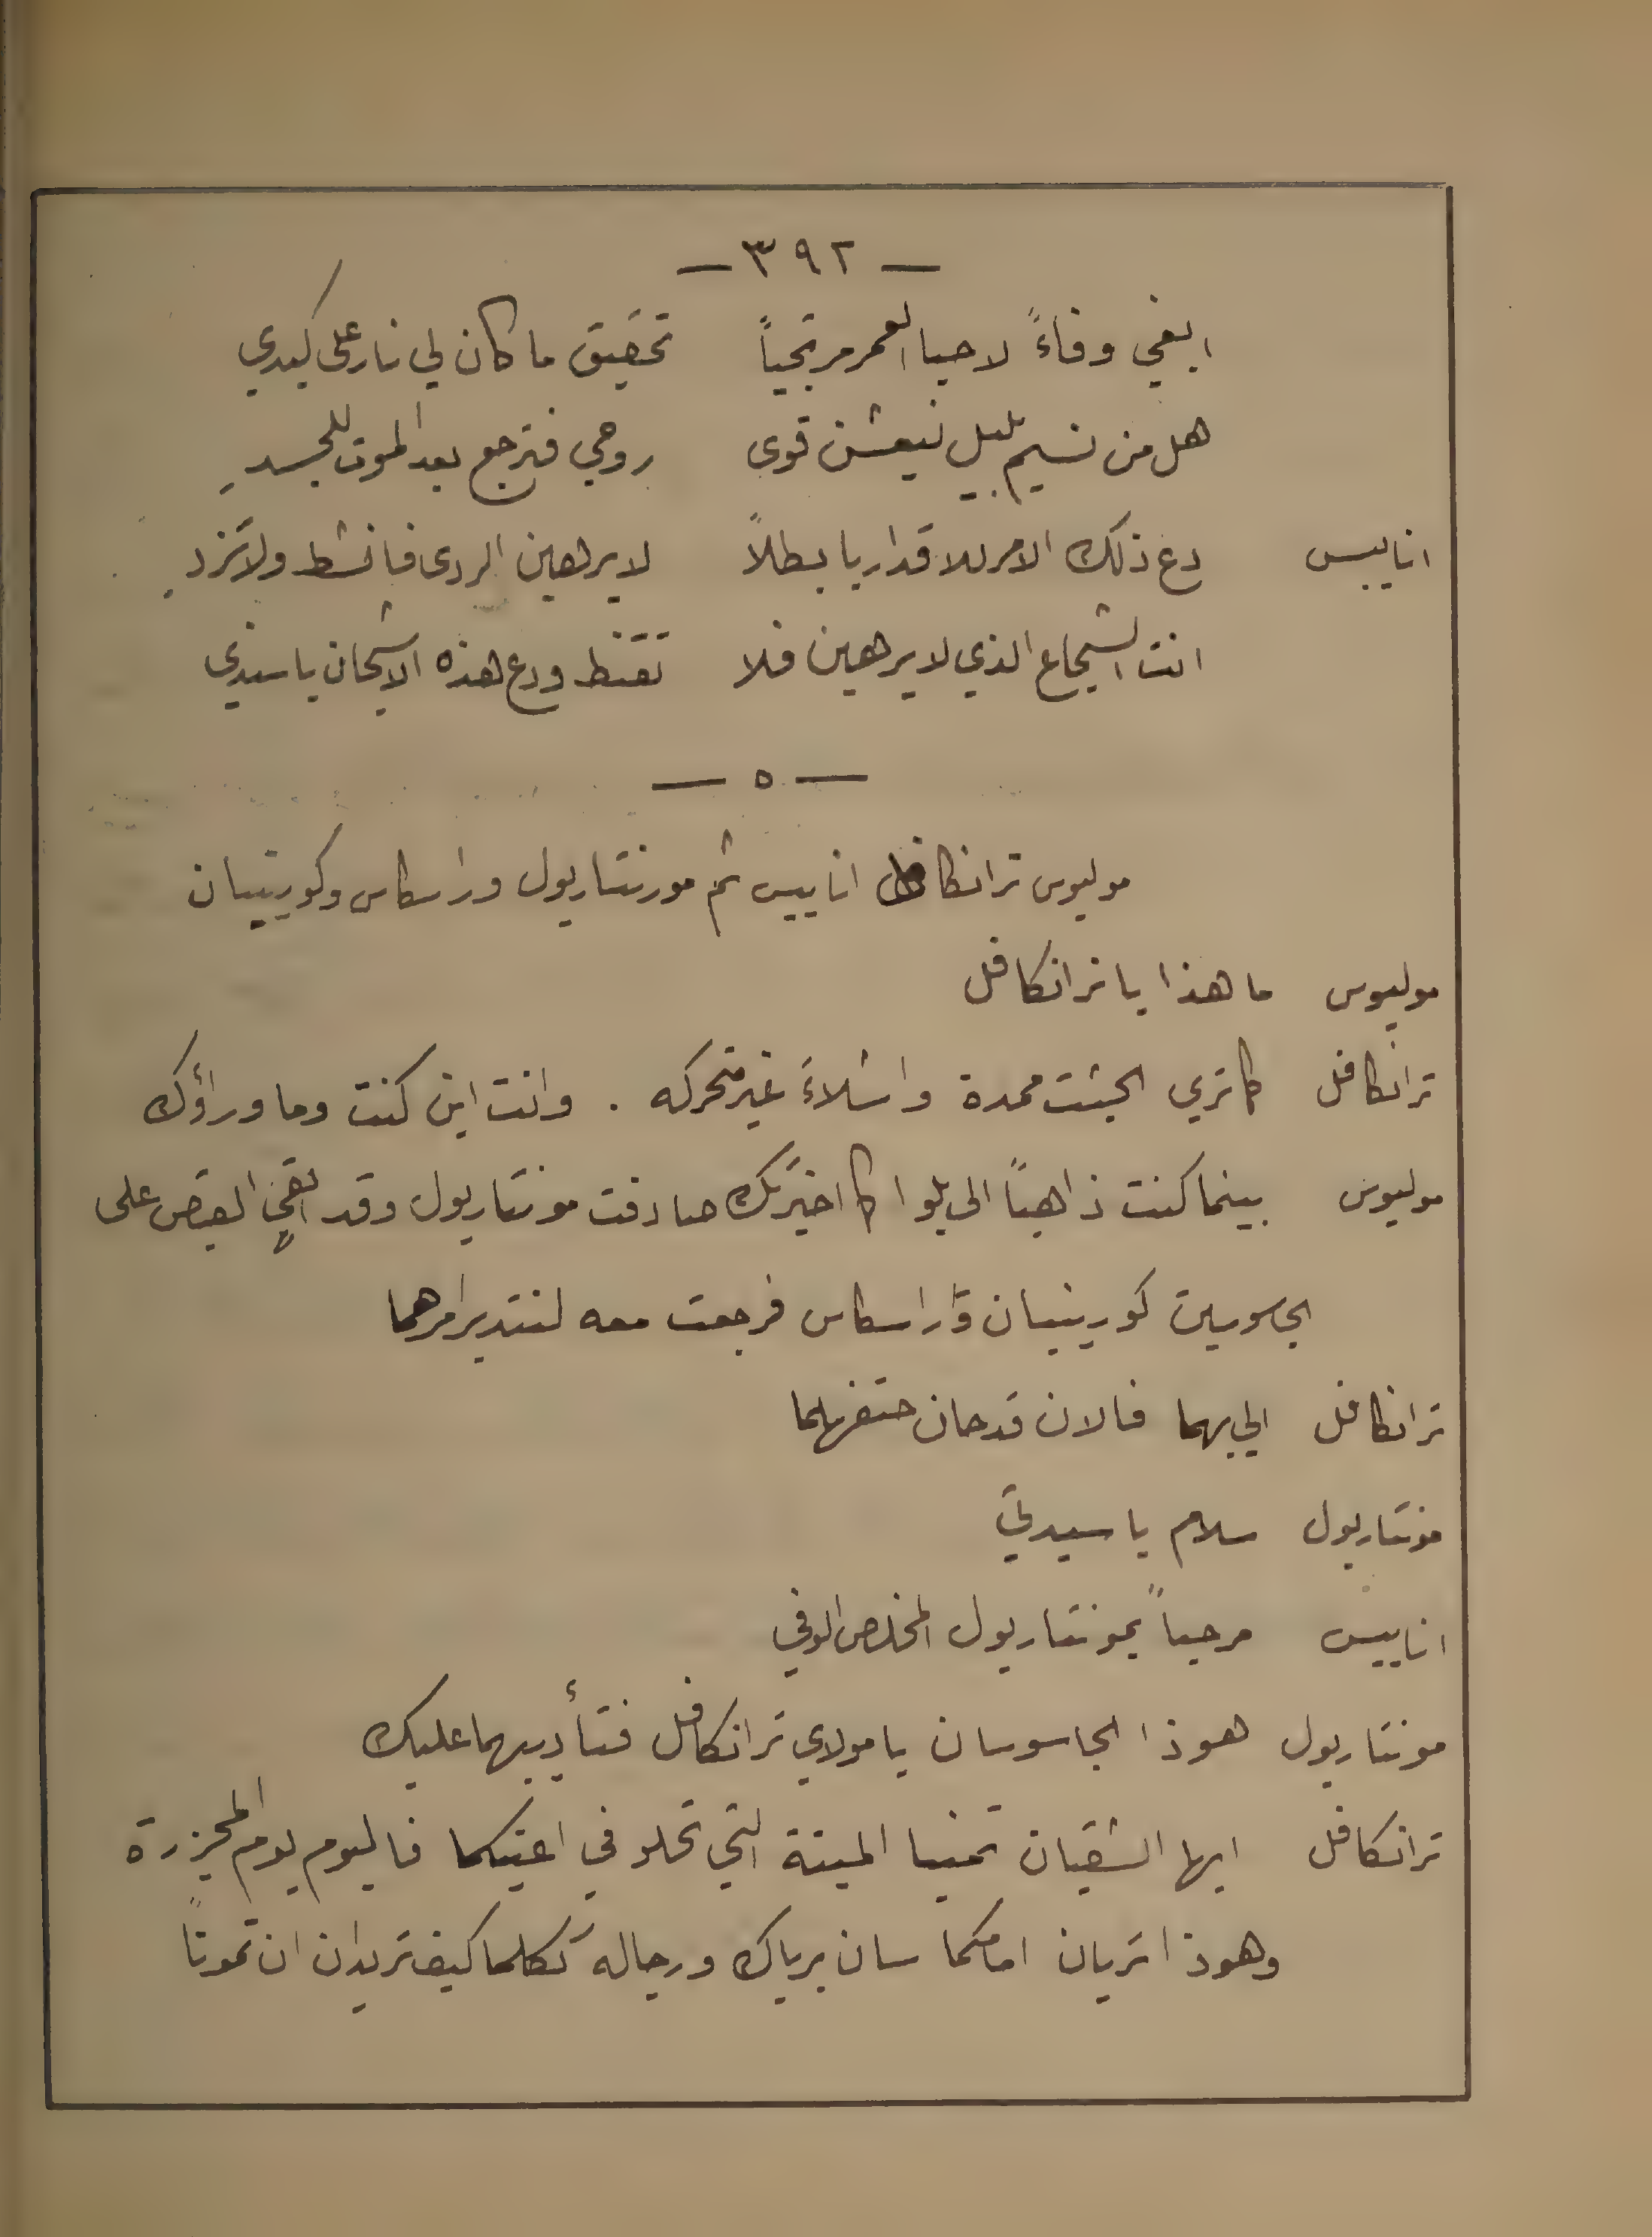 — ٣٩٢ —
ابغي وفاءً لاحيا العمر مرتجياً تحقيق ما كان لي نار على كبدي
هل من نسيم بليل ينعش قوى روحي فترجع بعد الموت للجسدِ
اناييس دع ذلك الامر للاقدار يا بطلاً لا يرهبن الردى فانشط ولا تزدِ
انت الشجاع الذي لا يرهبن فلا تقنط ودع هذه الاشجان يا سندي
— ٥ —
موليوس ترانكافل اناييس ثم مونتاريول وراسكاس وكورينيان
موليوس ما هذا يا ترانكافل
ترانكافل كما ترى الجثث ممدة واشلاءَ غير متحركه . وانت اين كنت وما وراؤك
موليوس بينما كنت ذاهباً الى بلوا كما اخبرتك صادفت مونتاريول وقد القي القبض على
الجاسوسين كورينيان وراسكاس فرجعت معه لنتدبر امرهما
ترانكافل اليّ بهما فالان قد حان حتفهما
مونتاريول سلام يا سيدتي
اناييس مرحباً بمونتاريول المخلص الوفي
مونتاريول هوذا الجاسوسان يا مولاي ترانكافل فتأديبهما عليك
ترانكافل ايها الشقيان تمنيا الميتة التي تحلو في اعينكما فاليوم يوم المجزرة
وهوذا تريان امامكما سان برياك ورجاله تكلما كيف تريدان ان تموتا